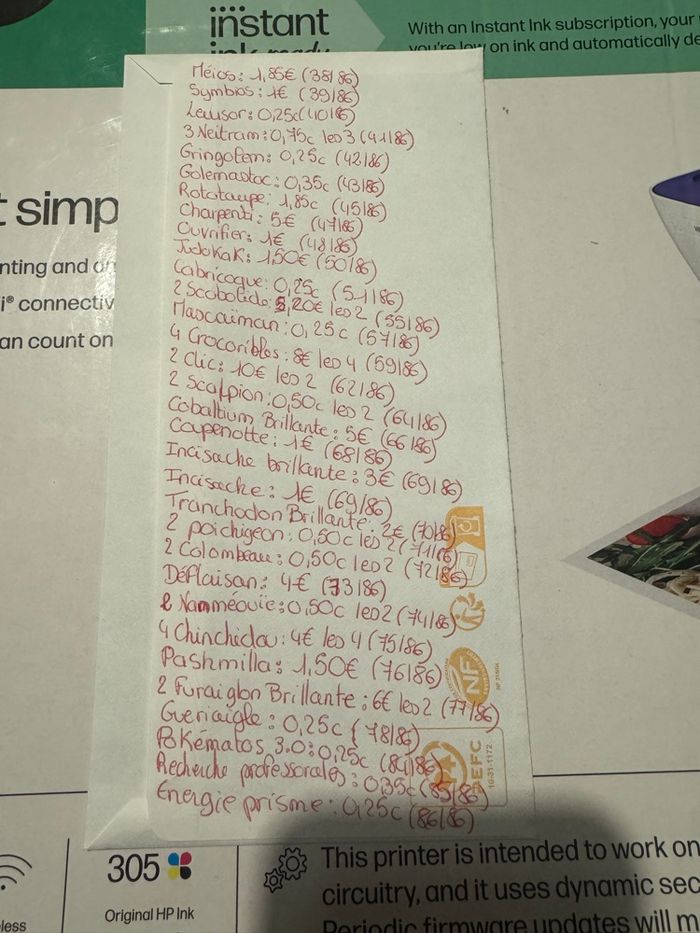 instant
ink ready
With an Instant Ink subscription, your
you're low on ink and automatically de
t simp
nting and on
i® connectiv
an count on
Méios: 1,85€ (38/86)
Symbios: 1€ (39/86)
Lewsor: 0,25c (40/86)
3 Neitram: 0,75c les 3 (41/86)
Gringolem: 0,25c (42/86)
Golemastoc: 0,35c (43/86)
Rototaupe: 1,85c (45/86)
Charpenti: 5€ (47/86)
Ouvrifier: 1€ (48/86)
Judokak: 1,50€ (50/86)
Crabicoque: 0,25c (51/86)
2 Scobolide: 5,20€ les 2 (55/86)
Mascaïman: 0,25c (57/86)
4 Crocoribles: 8€ les 4 (59/86)
2 Clic: 10€ les 2 (62/86)
2 Scalpion: 0,50c les 2 (64/86)
Cobaltium Brillante: 5€ (66/86)
Coupenotte: 1€ (68/86)
Incisache brillante: 3€ (69/86)
Incisache: 1€ (69/86)
Tranchodon Brillante: 2€ (70/86)
2 poichigeon: 0,50c les 2 (71/86)
2 Colombeau: 0,50c les 2 (72/86)
Déflaisan: 4€ (73/86)
2 Nanméouïe: 0,50c les 2 (74/86)
4 Chinchidou: 4€ les 4 (75/86)
Pashmilla: 1,50€ (76/86)
2 Furaiglon Brillante: 6€ les 2 (77/86)
Gueriaigle: 0,25c (78/86)
Pokématos 3.0: 0,25c (84/86)
Recherche professorales: 0,35c (85/86)
Energie prisme: 0,25c (86/86)
NF
PEFC
10-31-1172
305
Original HP Ink
less
This printer is intended to work on
circuitry, and it uses dynamic sec
Periodic firmware updates will m